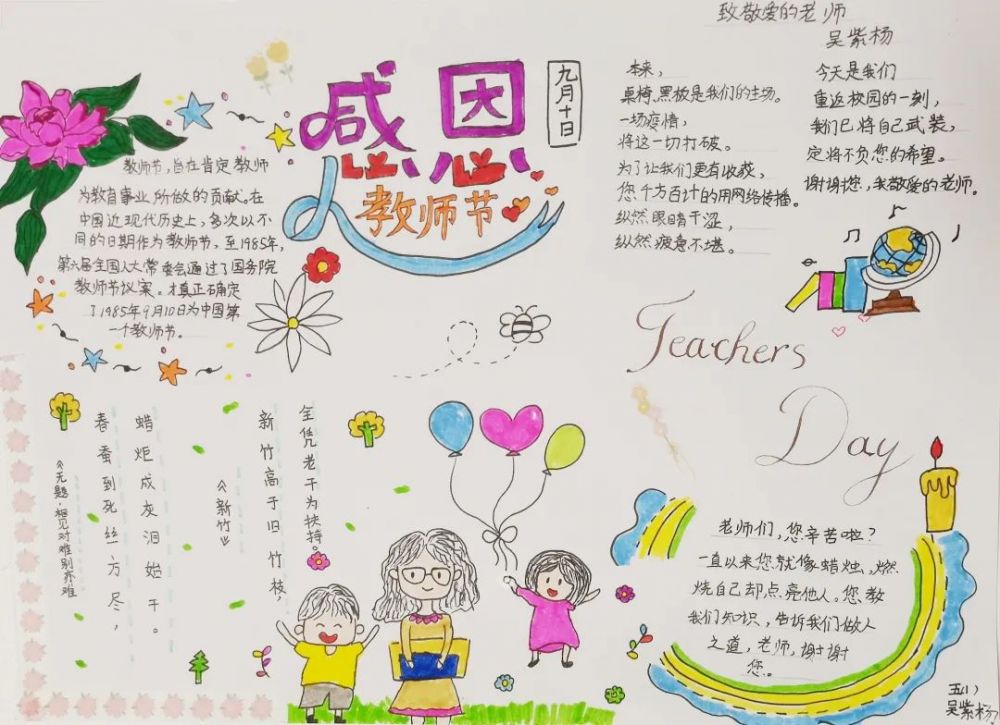 感恩
教师节
九月十日
教师节,旨在肯定教师
为教育事业所做的贡献。在
中国近现代历史上,多次以不
同的日期作为教师节,至1985年,
第六届全国人大常委会通过了国务院
教师节议案。才真正确定
了1985年9月10日为中国第
一个教师节。
致敬爱的老师
吴紫杨
本来,
桌椅、黑板是我们的主场。
一场疫情,
将这一切打破。
为了让我们更有收获,
您千方百计的用网络传播。
纵然眼睛干涩,
纵然疲惫不堪。
今天是我们
重返校园的一刻,
我们已将自己武装,
定将不负您的希望。
谢谢您,我敬爱的老师。
Teachers
Day
《新竹》
新竹高于旧竹枝,
全凭老干为扶持。
《无题·相见对难别亦难
春蚕到死丝方尽,
蜡炬成灰泪始干。
老师们,您辛苦啦?
一直以来您就像蜡烛,燃
烧自己却点亮他人。您教
我们知识,告诉我们做人
之道,老师,谢谢
您。
五(1)
吴紫杨